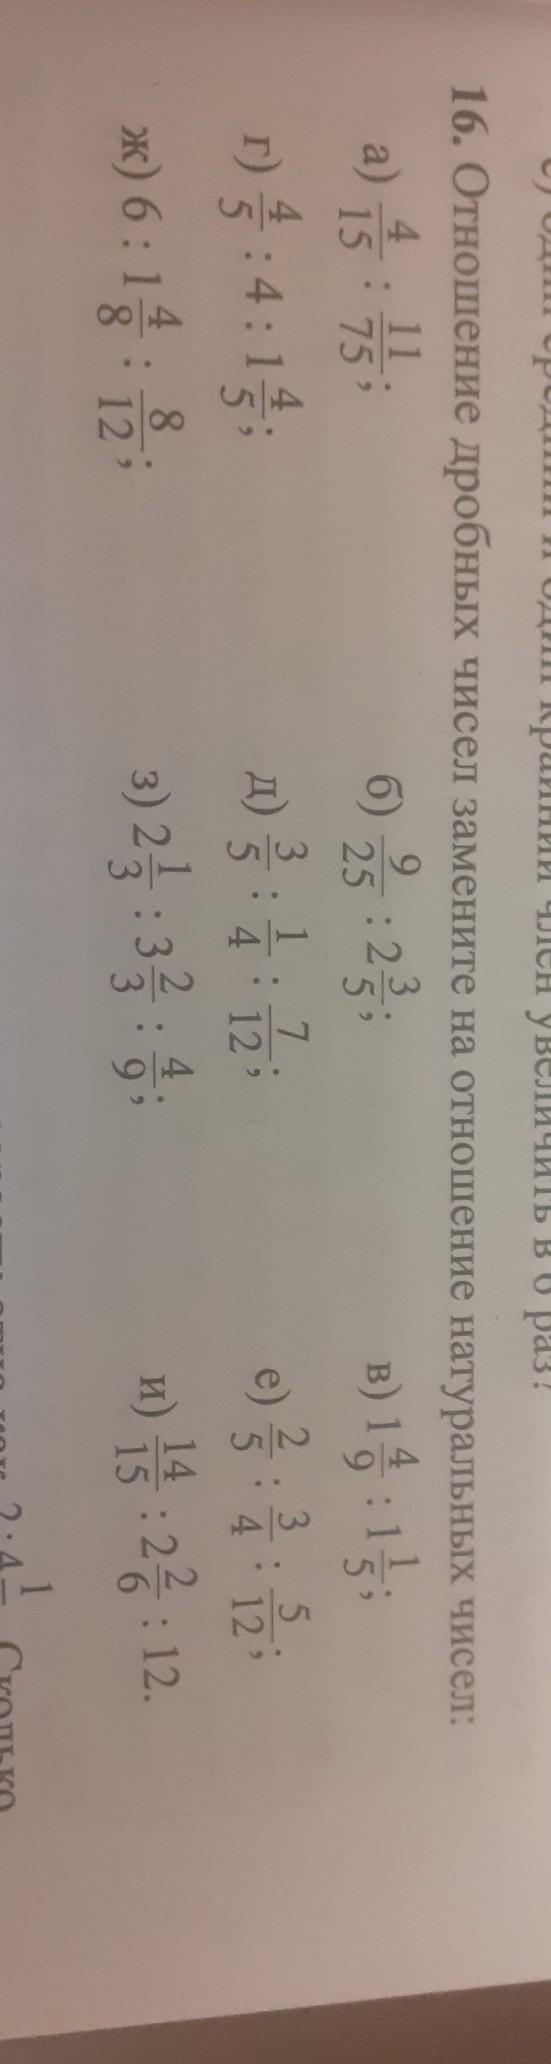 один средний и один крайний член увеличить в 6 раз?
16. Отношение дробных чисел замените на отношение натуральных чисел:
а) 4/15 : 11/75; б) 9/25 : 2 3/5; в) 1 4/9 : 1 1/5;
г) 4/5 : 4 : 1 4/5; д) 3/5 : 1/4 : 7/12; е) 2/5 : 3/4 : 5/12;
ж) 6 : 1 4/8 : 8/12; з) 2 1/3 : 3 2/3 : 4/9; и) 14/15 : 2 2/6 : 12.
Сколько